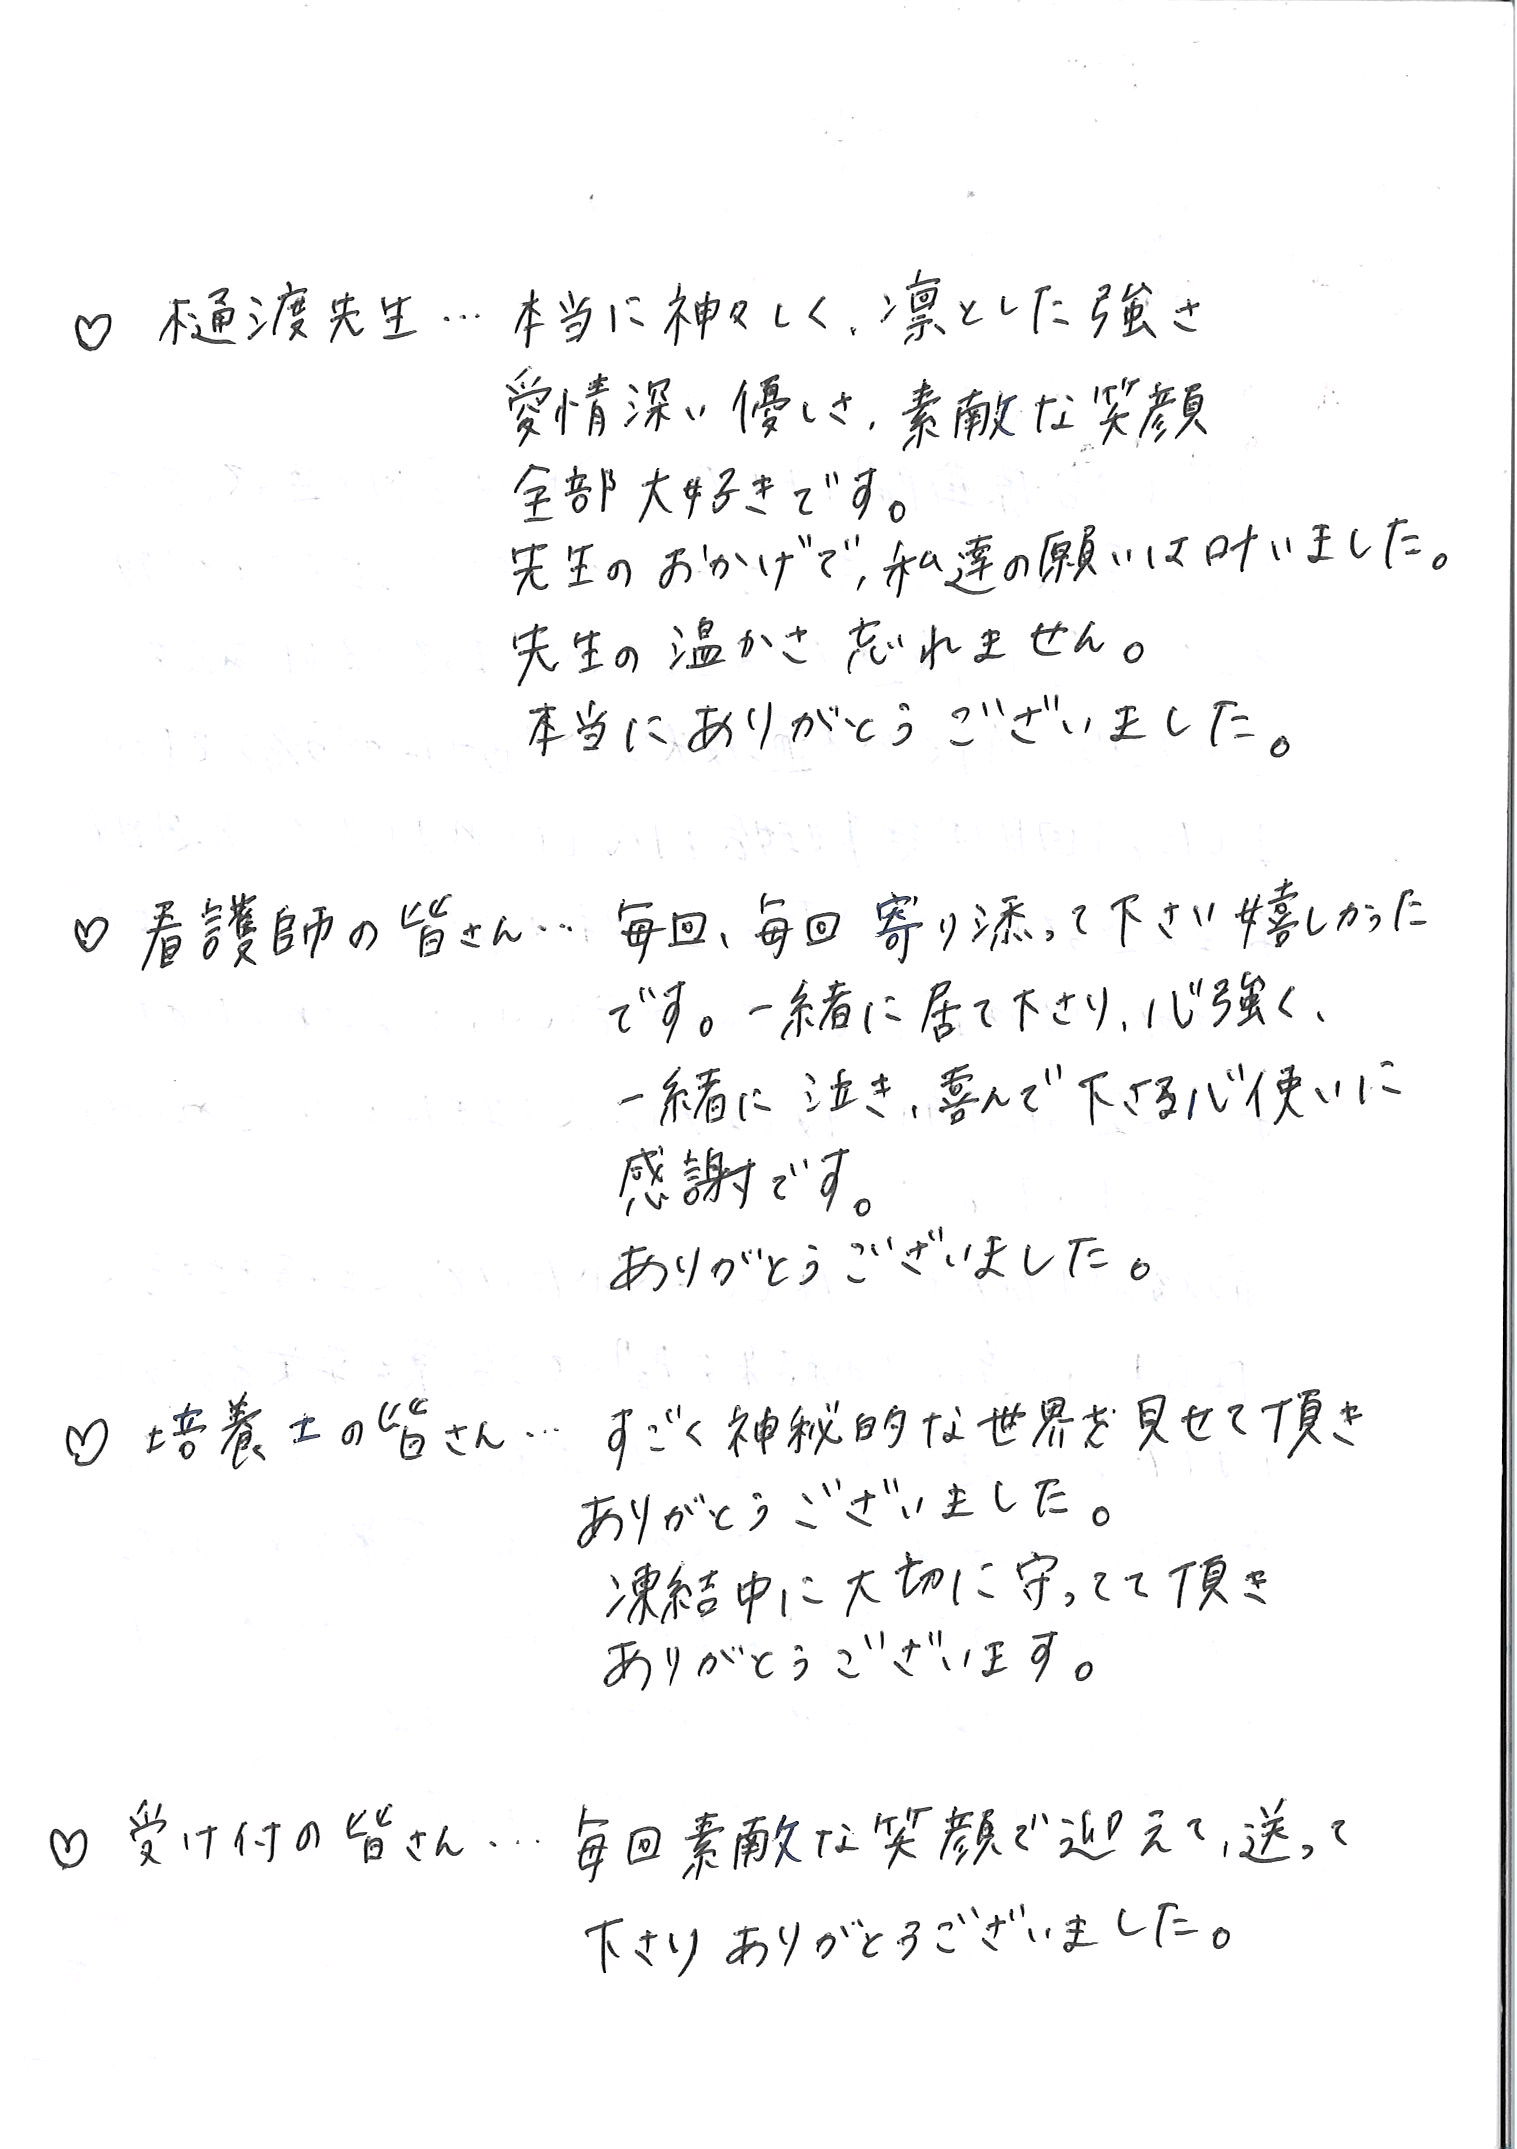 ♡ 樋渡先生… 本当に神々しく、凛とした強さ
愛情深い優しさ、素敵な笑顔
全部大好きです。
先生のおかげで、私達の願いは叶いました。
先生の温かさ忘れません。
本当にありがとうございました。
♡ 看護師の皆さん… 毎回、毎回寄り添って下さい嬉しかった
です。一緒に居て下さり、心強く、
一緒に泣き、喜んで下さる心使いに
感謝です。
ありがとうございました。
♡ 培養士の皆さん… すごく神秘的な世界を見せて頂き
ありがとうございました。
凍結中に大切に守ってて頂き
ありがとうございます。
♡ 受け付の皆さん… 毎回素敵な笑顔で迎えて、送って
下さりありがとうございました。